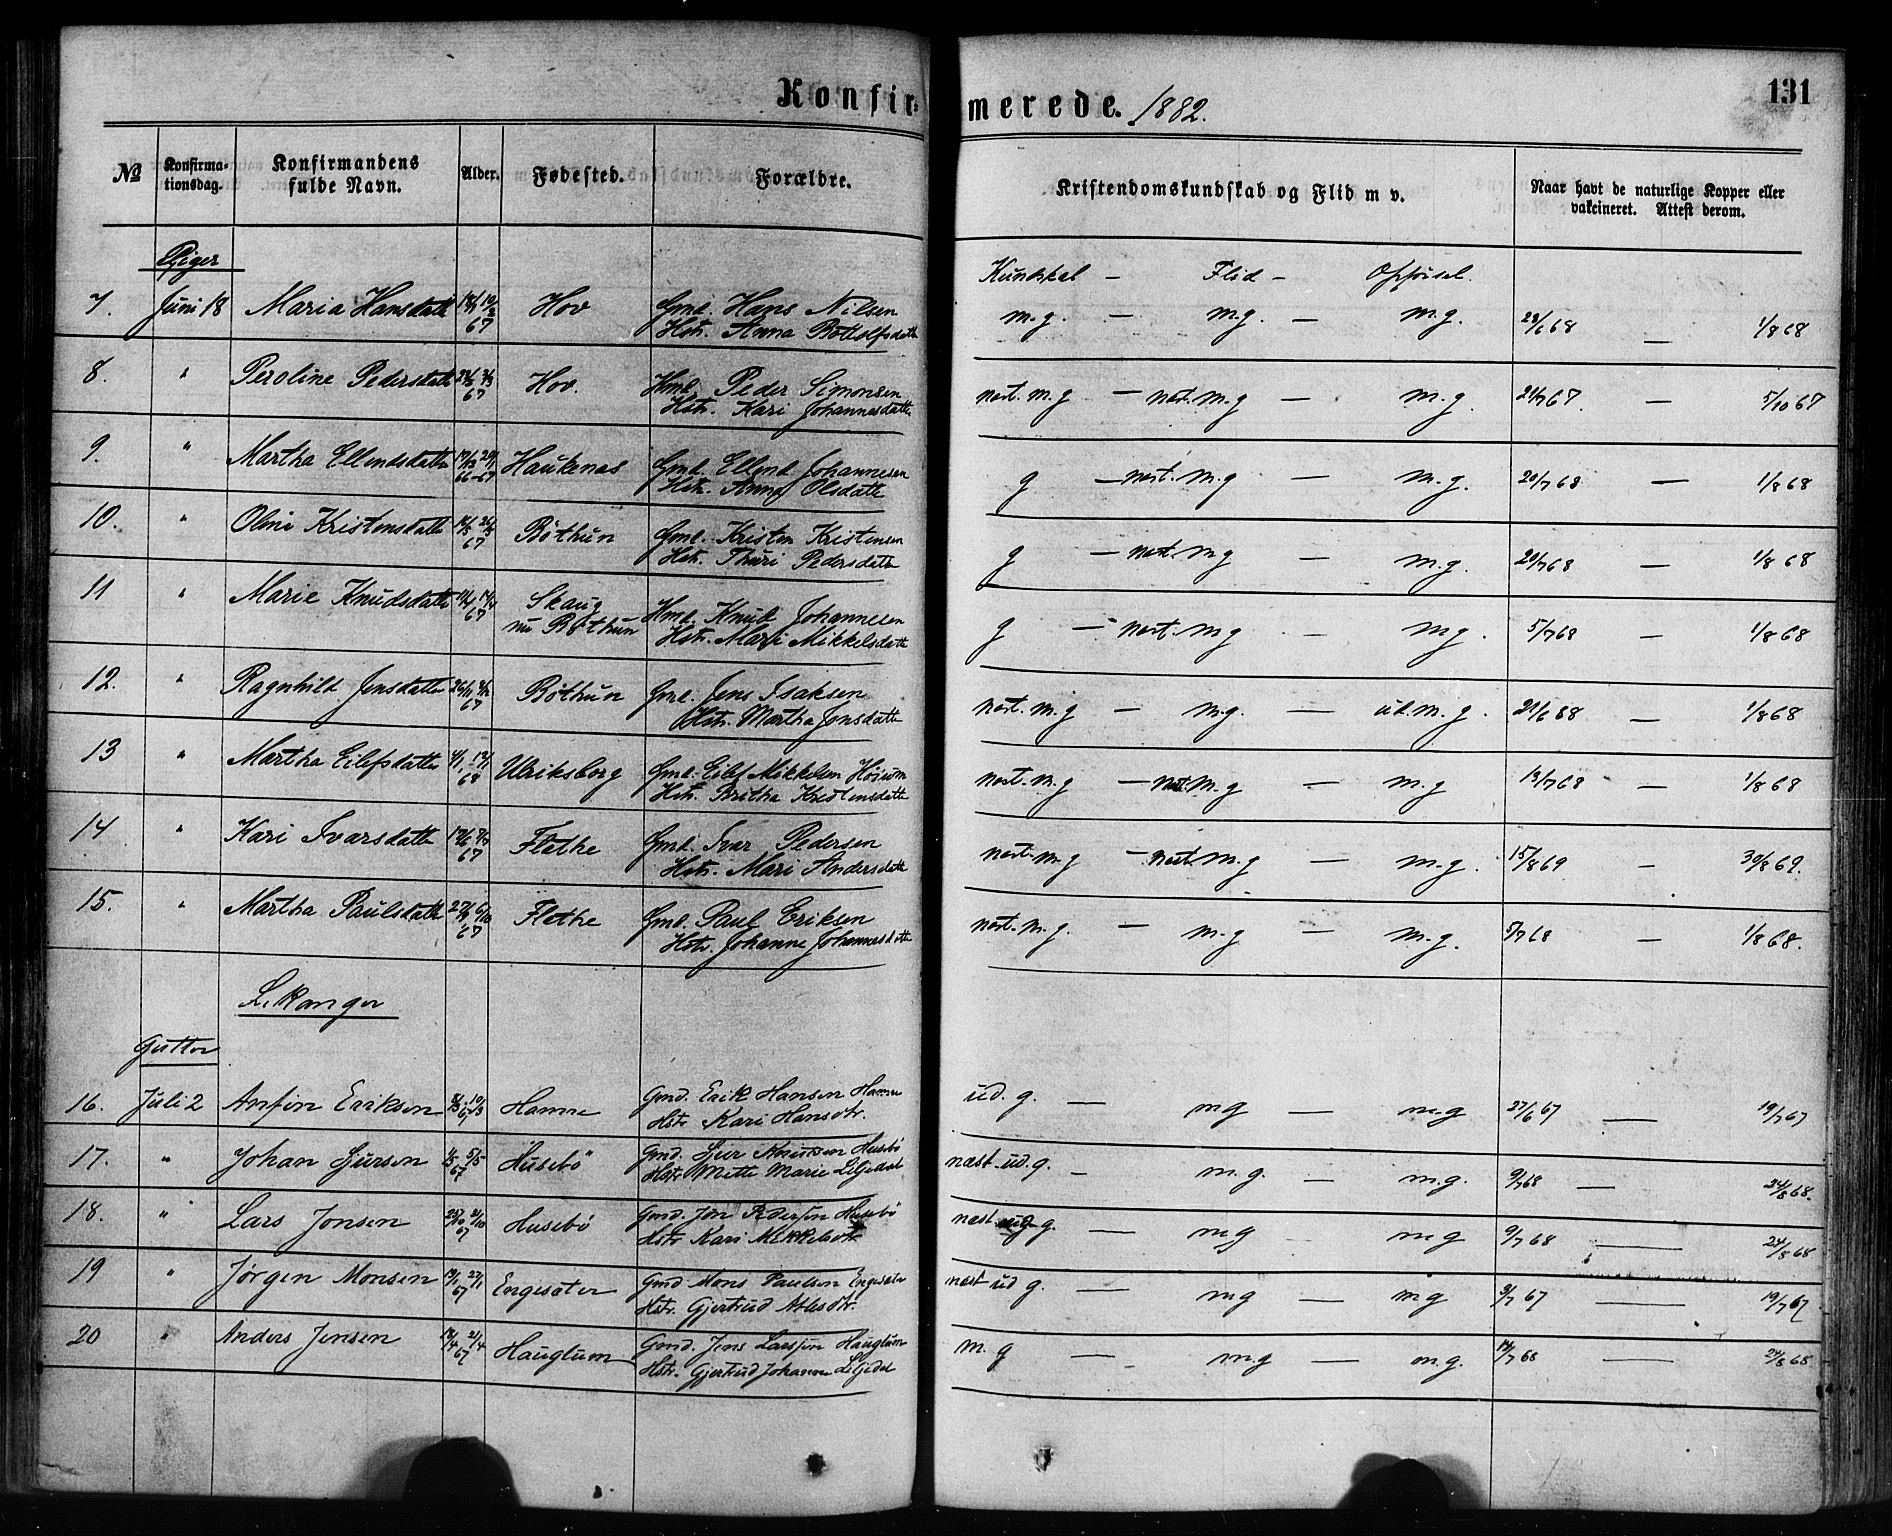 Konfirmerede. 1882.
131
No
Konfirma-tionsdag.
Konfirmandens fulde Navn.
Alder.
Fødested.
Forældre.
Kristendomskundskab og Flid m v.
Naar havt de naturlige Kopper eller vakcineret. Attest derom.
Piger
Kundskab — Flid — Opførsel.
7. Juni 18 Maria Hansdatter 67 Hov Gmd. Hans Nilsen
Hstr. Anna Bottolfsdatter
m.g. — m.g. — m.g. 23/6 68 — 1/8 68
8. " Peroline Pedersdatter 67 Hov. Hmd. Peder Simonsen
Hstr. Kari Johannesdatter
nest. m.g — nest. m.g — m.g. 21/7 67. — 5/10 67
9. " Martha Ellendsdatter 66-67 Haukenas Gmd. Ellend Johannesen
Hstr. Anna Olsdatter
g — nest. m.g — m.g. 20/7 68 — 1/8 68
10. " Oline Kristensdatter 67 Bøthun Gmd. Kristen Kristensen
Hstr. Thuri Pedersdatter
g — nest. m.g — m.g. 20/7 68 — 1/8 68
11 " Marie Knudsdatter 67 Skaug
nu Bøthun Hmd. Knud Johannesen
Hstr. Mari Mikkelsdatter
g — nest. m.g — m.g. 5/7 68 — 1/8 68
12. " Ragnhild Jensdatter 67 Bøthun Gmd. Jens Isaksen
Hstr. Martha Jonsdatter
nest. m.g — m.g. — ud. m.g. 21/6 68 — 1/8 68
13 " Martha Eilefsdatter 68 Ulriksborg Gmd. Eilef Mikkelsen Høium
Hstr. Britha Kristensdatter
nest. m.g — nest. m.g — m.g 13/7 68 — 1/8 68
14 " Kari Ivarsdatter 67 Flethe Gmd. Ivar Pedersen
Hstr. Mari Andersdatter
nest. m.g — nest m.g — m.g. 15/8 69 — 30/8 69.
15. " Martha Paulsdatter 67 Flethe Gmd. Paul Eriksen
Hstr. Johanne Johannesdatter
nest. m.g. — m.g — m.g. 5/7 68 — 1/8 68.
Lekanger
Gutter
16. Juli 2 Anfin Eriksen 67 Hamre Gmd. Erik Hansen Hamre
Hstr Kari Hansdtr.
ud. g. — mg — m.g 27/6 67 — 19/7 67
17. " Johan Gjursen 67 Husebø Gmd. Gjur Knutsen Husebø
Hstr Mette Marie Legedal
næst ud. g. — m.g. — m.g. 9/7 68 — 24/8 68.
18. " Lars Jonsen 67 Husebø Gmd. Jon Pedersen Husebø
Hstr Kari Mikkelsdtr.
næst ud g. — mg — mg 9/7 68 — 24/8 68
19 " Jørgen Monsen 67 Engesæter Gmd Mons Paulsen Engesæter
Hstr. Gjertrud Atlesdtr.
næst ud g. — mg — mg 9/7 67 — 19/7 67
20 " Anders Jensen 67 Hauglum Gmd. Jens Larssen Hauglum
Hstr. Gjertrud Johanne Legedal
m. g — m.g — m.g. 14/7 68 — 24/8 68